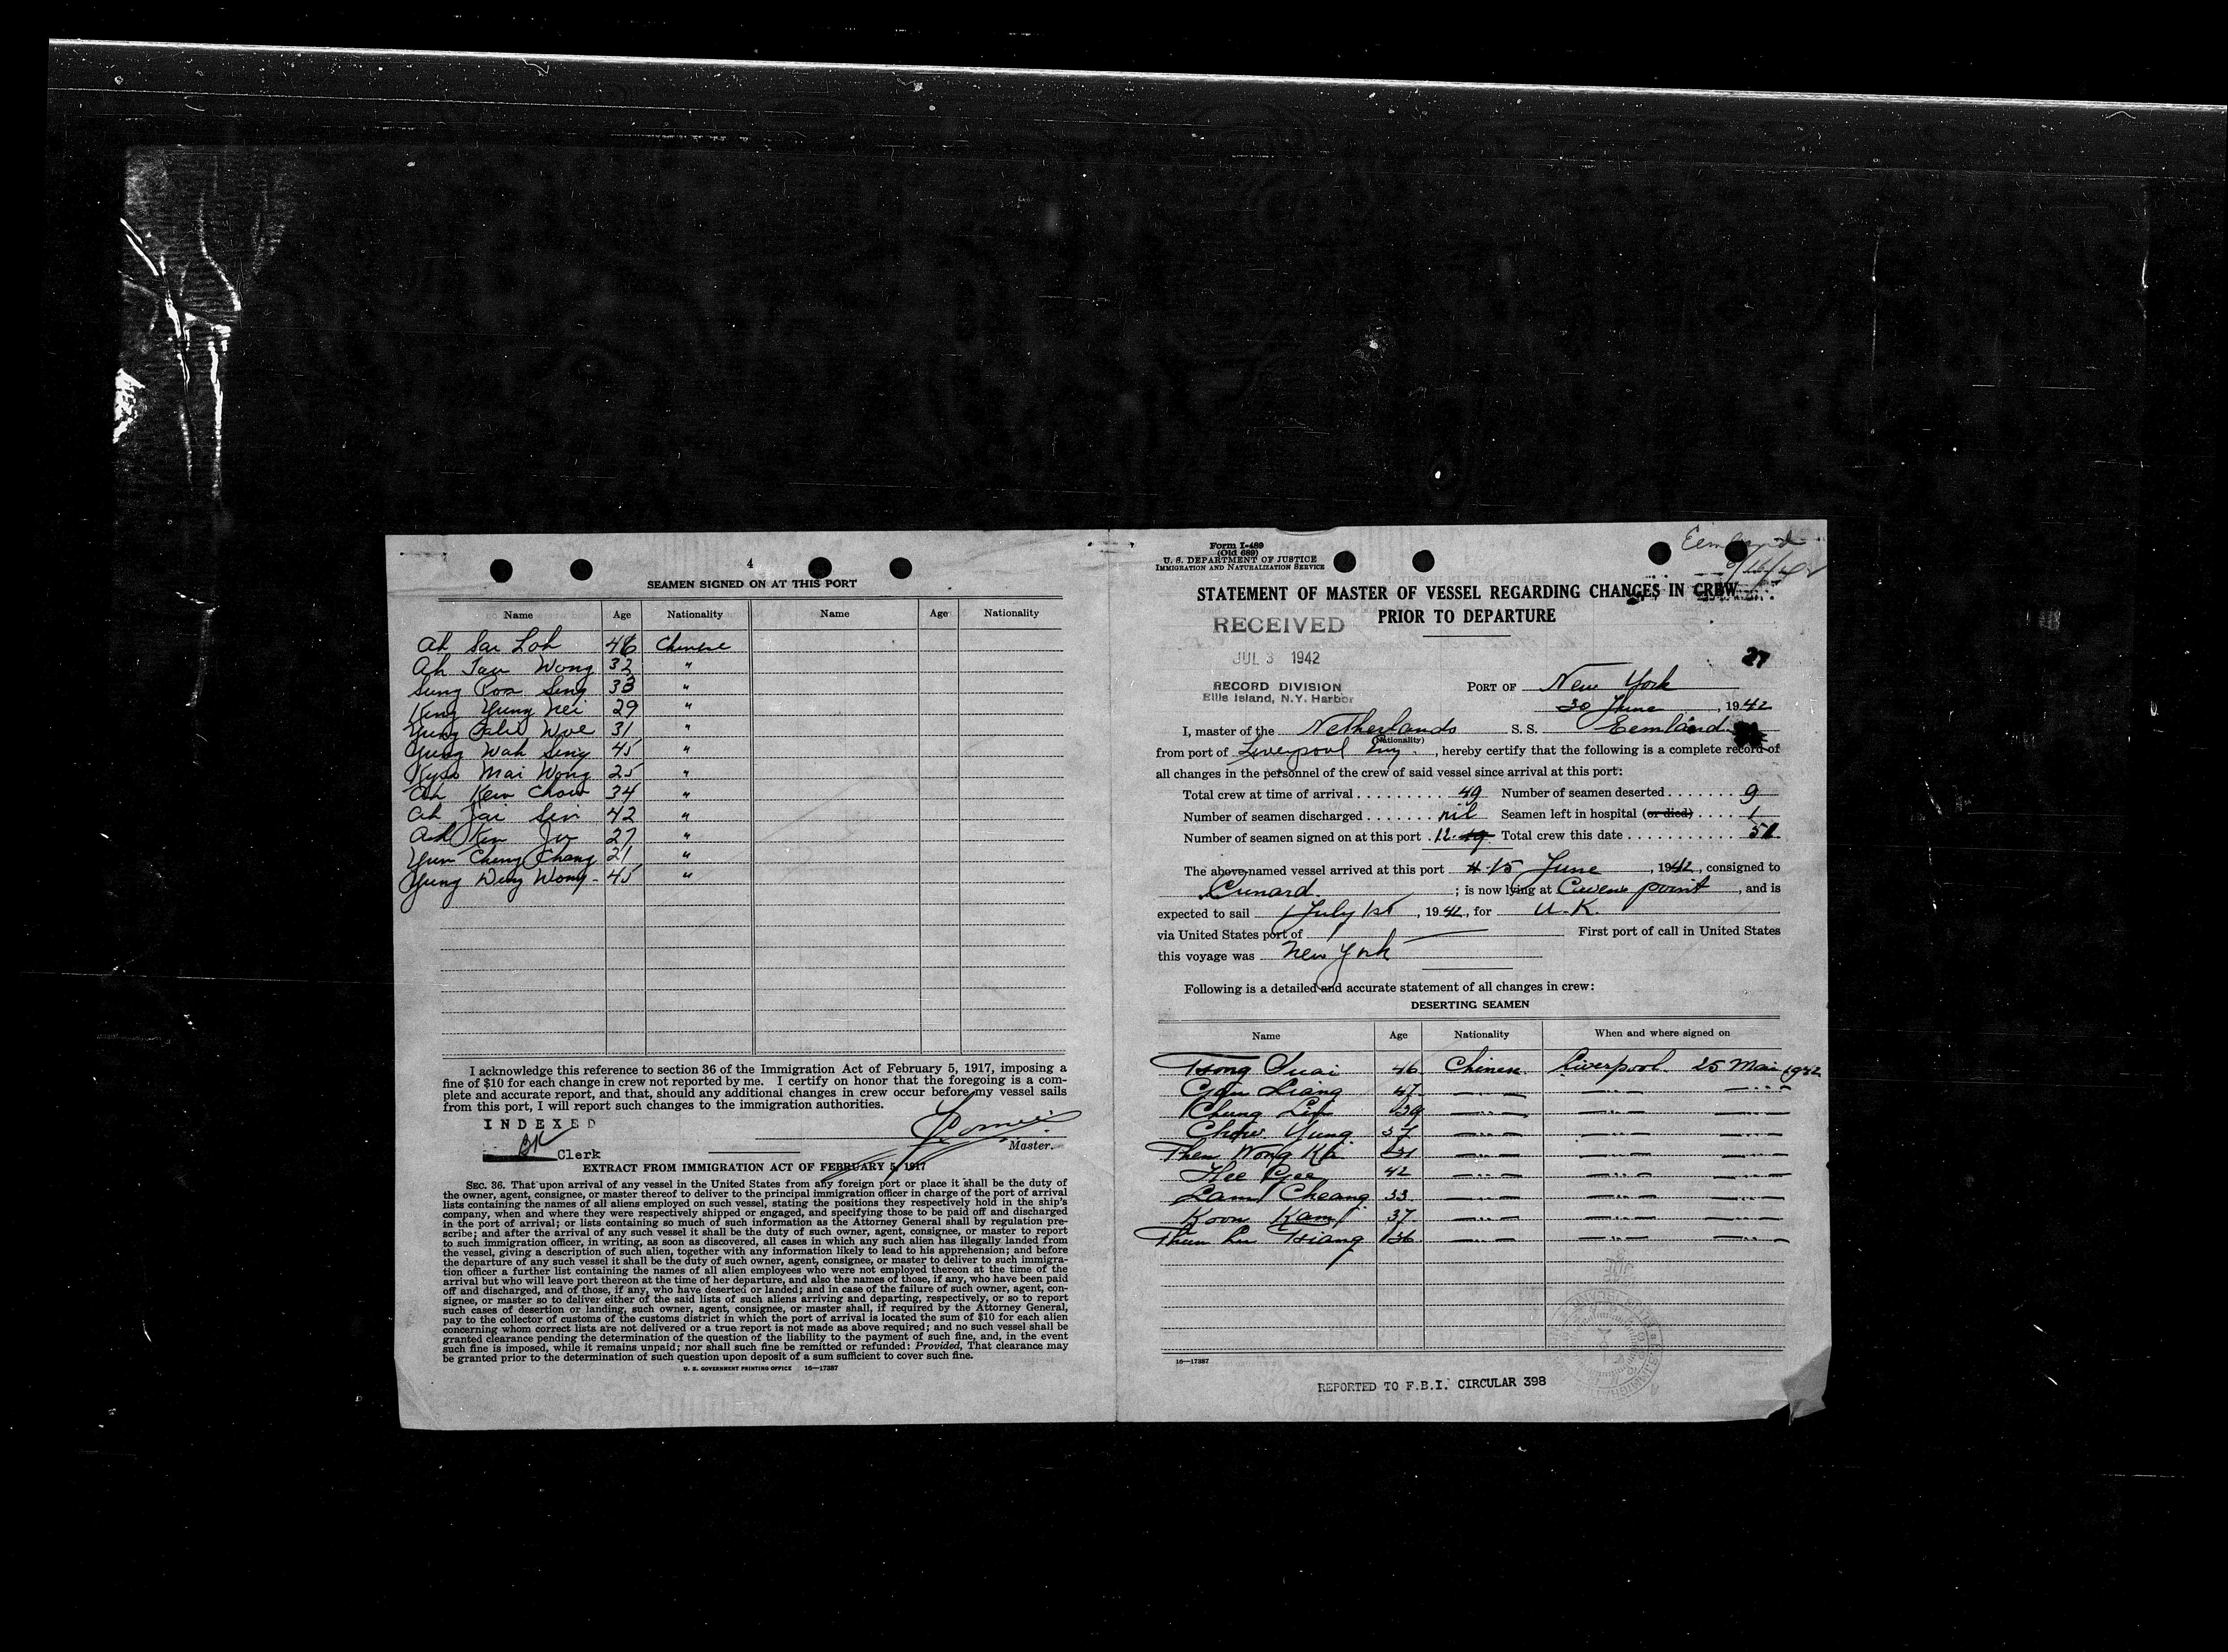 4
SEAMEN SIGNED ON AT THIS PORT
Name Age Nationality Name Age Nationality
Ah Sai Loh 46 Chinese
Ah Tau Wong 32 "
Sung Poa Sing 33 "
King Yung Nei 29 "
Yung 31 "
Yung Wah Sing 45 "
Kyao Mai Wong 25 "
Ah Kew Chow 34 "
Ah Jai Sin 42 "
Ah Ken 27 "
Yun Cheng Chang 21 "
Yung Ding Wong - 45 "
I acknowledge this reference to section 36 of the Immigration Act of February 5, 1917, imposing a
fine of $10 for each change in crew not reported by me. I certify on honor that the foregoing is a com-
plete and accurate report, and that, should any additional changes in crew occur before my vessel sails
from this port, I will report such changes to the immigration authorities.
INDEXED
BK Clerk
Master.
EXTRACT FROM IMMIGRATION ACT OF FEBRUARY 5, 1917
SEC. 36. That upon arrival of any vessel in the United States from any foreign port or place it shall be the duty of
the owner, agent, consignee, or master thereof to deliver to the principal immigration officer in charge of the port of arrival
lists containing the names of all aliens employed on such vessel, stating the positions they respectively hold in the ship's
company, when and where they were respectively shipped or engaged, and specifying those to be paid off and discharged
in the port of arrival; or lists containing so much of such information as the Attorney General shall by regulation pre-
scribe; and after the arrival of any such vessel it shall be the duty of such owner, agent, consignee, or master to report
to such immigration officer, in writing, as soon as discovered, all cases in which any such alien has illegally landed from
the vessel, giving a description of such alien, together with any information likely to lead to his apprehension; and before
the departure of any such vessel it shall be the duty of such owner, agent, consignee, or master to deliver to such immigra-
tion officer a further list containing the names of all alien employees who were not employed thereon at the time of the
arrival but who will leave port thereon at the time of her departure, and also the names of those, if any, who have been paid
off and discharged, and of those, if any, who have deserted or landed; and in case of the failure of such owner, agent, con-
signee, or master so to deliver either of the said lists of such aliens arriving and departing, respectively, or so to report
such cases of desertion or landing, such owner, agent, consignee, or master shall, if required by the Attorney General,
pay to the collector of customs of the customs district in which the port of arrival is located the sum of $10 for each alien
concerning whom correct lists are not delivered or a true report is not made as above required; and no such vessel shall be
granted clearance pending the determination of the question of the liability to the payment of such fine, and, in the event
such fine is imposed, while it remains unpaid; nor shall such fine be remitted or refunded: Provided, That clearance may
be granted prior to the determination of such question upon deposit of a sum sufficient to cover such fine.
U. S. GOVERNMENT PRINTING OFFICE 16—17387
Form I-489
(Old 689)
U. S. DEPARTMENT OF JUSTICE
IMMIGRATION AND NATURALIZATION SERVICE
Eemland
STATEMENT OF MASTER OF VESSEL REGARDING CHANGES IN CREW
PRIOR TO DEPARTURE
RECEIVED
JUL 3 1942
RECORD DIVISION
Ellis Island, N.Y. Harbor
27
PORT OF New York
30 June, 1942
I, master of the Netherlands S. S. Eemland
(Nationality)
from port of Liverpool Eng., hereby certify that the following is a complete record of
all changes in the personnel of the crew of said vessel since arrival at this port:
Total crew at time of arrival 49 Number of seamen deserted 9
Number of seamen discharged nil Seamen left in hospital (or died) 1
Number of seamen signed on at this port 12 19 Total crew this date 51
The above-named vessel arrived at this port 15 June, 1942, consigned to
Cunard; is now lying at Cavens point, and is
expected to sail July 1st, 1942, for U.K.
via United States port of — First port of call in United States
this voyage was New York
Following is a detailed and accurate statement of all changes in crew:
DESERTING SEAMEN
Name Age Nationality When and where signed on
Tsong Suai 46 Chinese Liverpool 25 Mai 1942
Liang 47 —"— —"— —"—
Chung Lin 39 —"— —"— —"—
Chow Yung 37 —"— —"— —"—
Then Wong Kai —"— —"— —"—
Hee Gee 42 —"— —"— —"—
Lam Cheang 33 —"— —"— —"—
Koon Kam 37 —"— —"— —"—
Thun Lu Tsiang 36 —"— —"— —"—
16—17387
REPORTED TO F.B.I. CIRCULAR 398